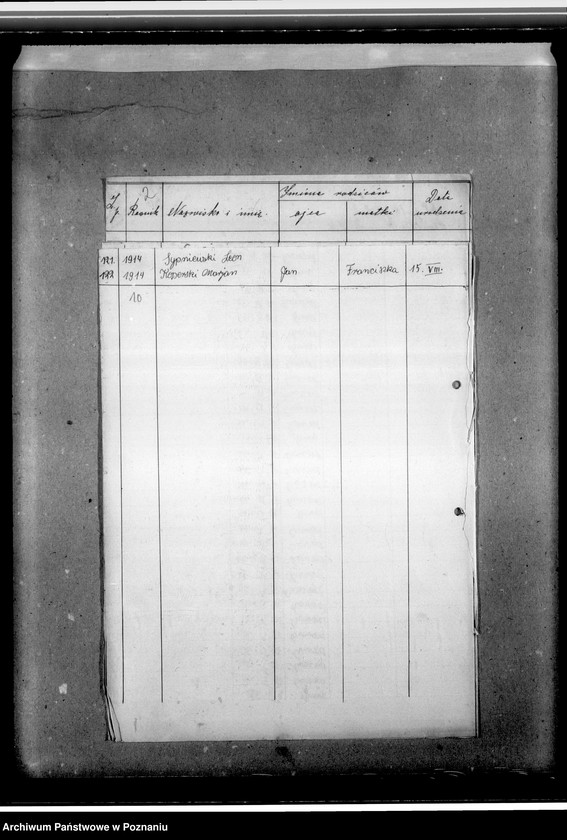 2
L.p. Rocznik Nazwisko i imię. Imiona rodziców Data urodzenia
ojca matki
121. 1914 Sypniewski Leon
122. 1919 Koperski Marjan Jan Franciszka 15. VIII.
10
Archiwum Państwowe w Poznaniu